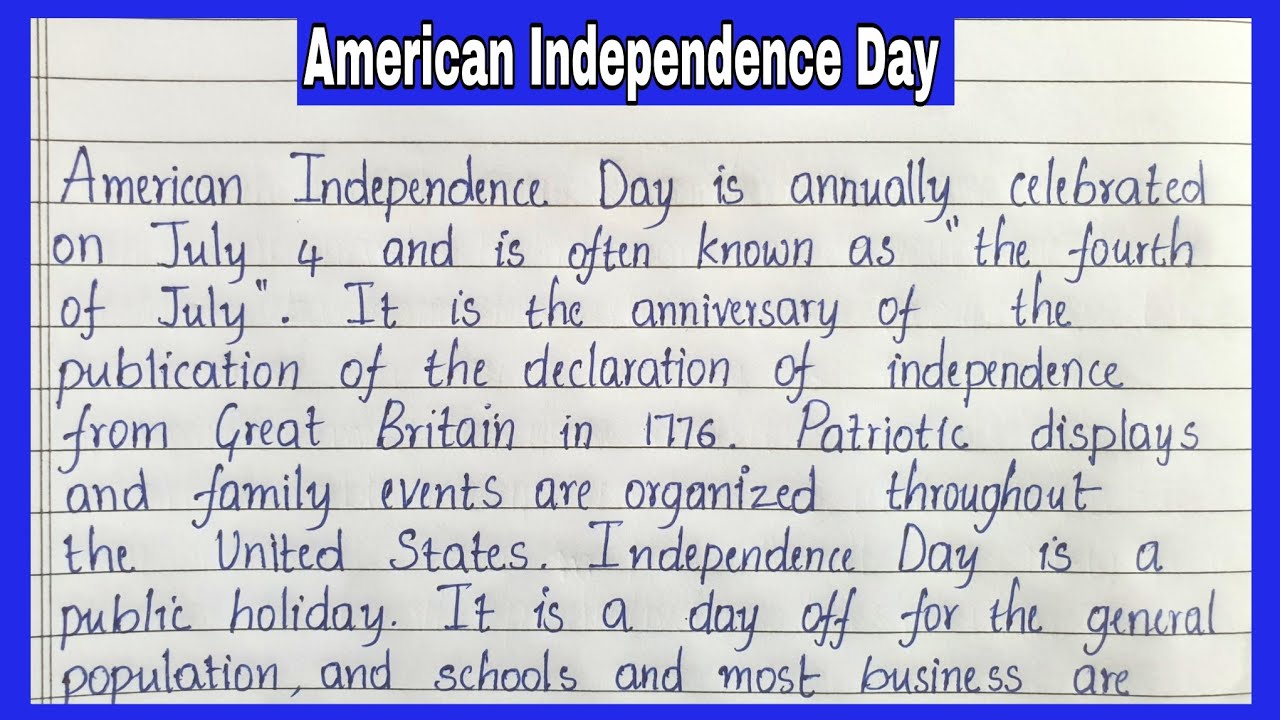 American Independence Day
American Independence Day is annually celebrated
on July 4 and is often known as "the fourth
of July". It is the anniversary of the
publication of the declaration of independence
from Great Britain in 1776. Patriotic displays
and family events are organized throughout
the United States. Independence Day is a
public holiday. It is a day off for the general
population, and schools and most business are